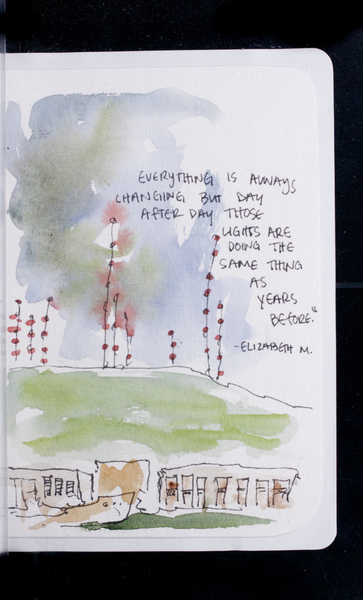 EVERYTHING IS ALWAYS
CHANGING BUT DAY
AFTER DAY THOSE
LIGHTS ARE
DOING THE
SAME THING
AS
YEARS
BEFORE."
-ELIZABETH M.